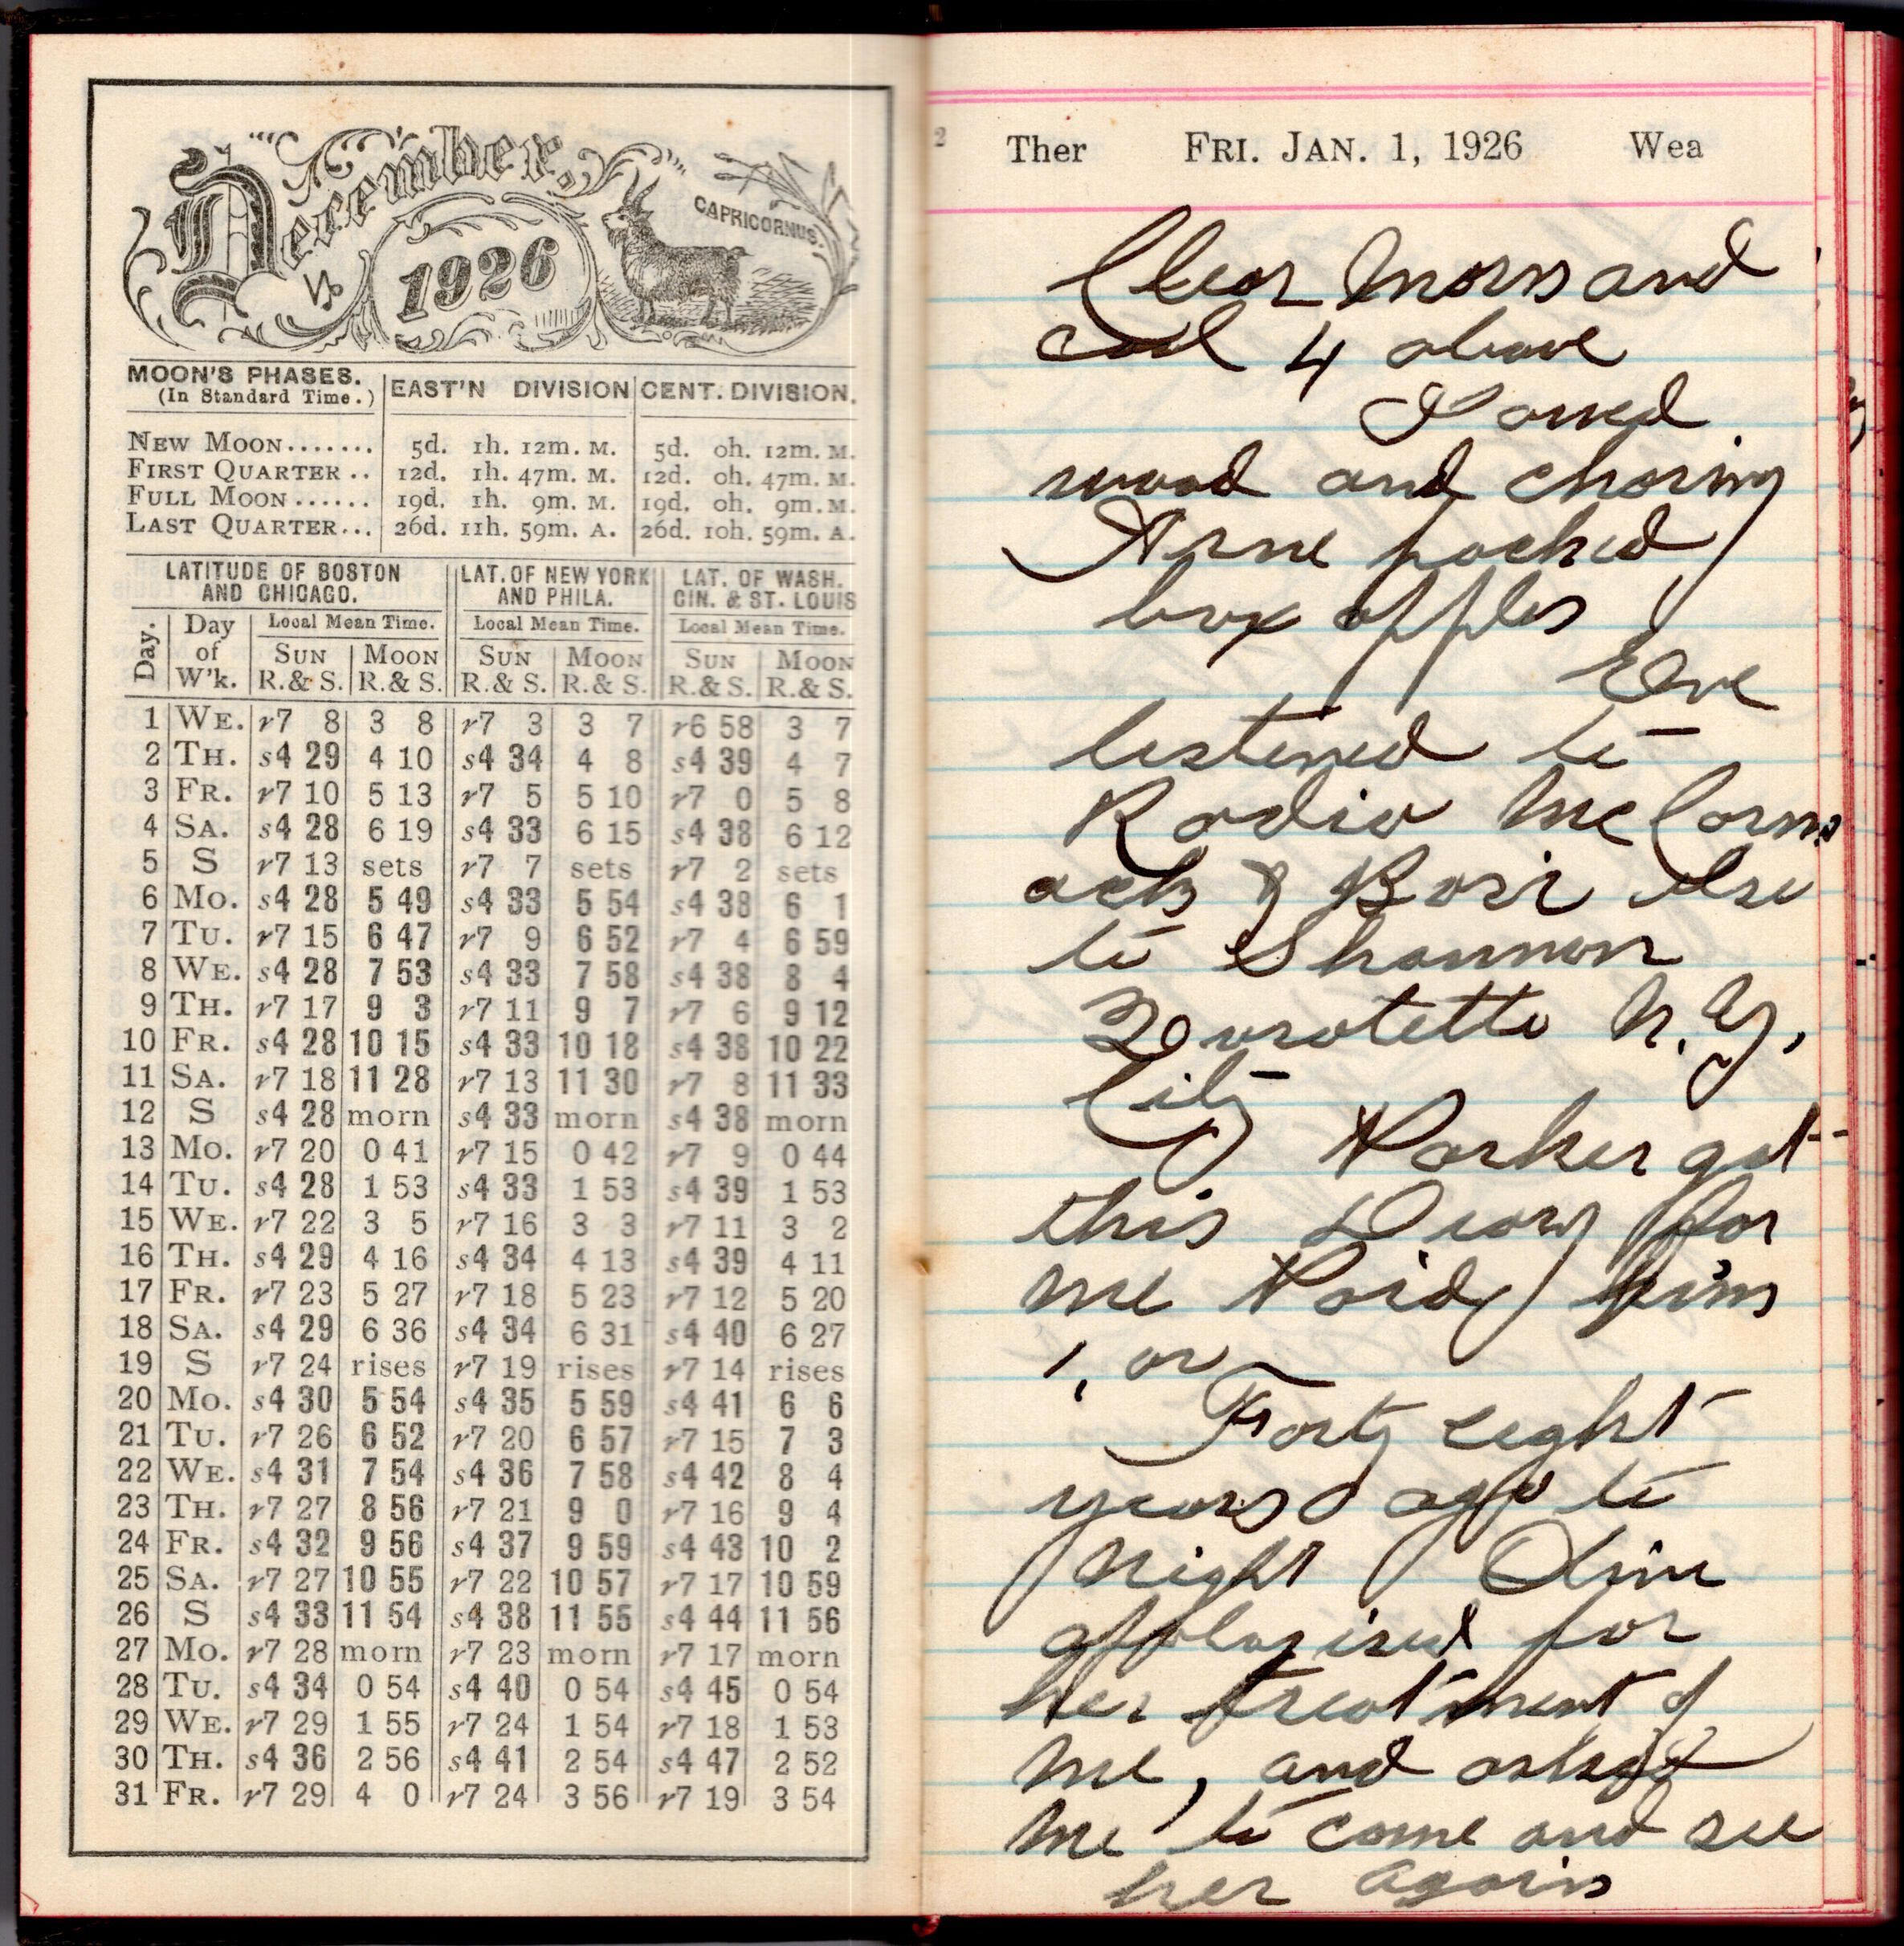 December,
1926
CAPRICORNUS.
MOON'S PHASES. EAST'N DIVISION CENT. DIVISION.
(In Standard Time.)
NEW MOON....... 5d. 1h. 12m. M. 5d. 0h. 12m. M.
FIRST QUARTER .. 12d. 1h. 47m. M. 12d. 0h. 47m. M.
FULL MOON...... 19d. 1h. 9m. M. 19d. 0h. 9m. M.
LAST QUARTER... 26d. 11h. 59m. A. 26d. 10h. 59m. A.
LATITUDE OF BOSTON LAT. OF NEW YORK LAT. OF WASH.
AND CHICAGO. AND PHILA. CIN. & ST. LOUIS
Day. Day of W'k. Local Mean Time. Local Mean Time. Local Mean Time.
SUN MOON SUN MOON SUN MOON
R.& S. R.& S. R.& S. R.& S. R.& S. R.& S.
1 WE. r7 8 3 8 r7 3 3 7 r6 58 3 7
2 TH. s4 29 4 10 s4 34 4 8 s4 39 4 7
3 FR. r7 10 5 13 r7 5 5 10 r7 0 5 8
4 SA. s4 28 6 19 s4 33 6 15 s4 38 6 12
5 S r7 13 sets r7 7 sets r7 2 sets
6 MO. s4 28 5 49 s4 33 5 54 s4 38 6 1
7 TU. r7 15 6 47 r7 9 6 52 r7 4 6 59
8 WE. s4 28 7 53 s4 33 7 58 s4 38 8 4
9 TH. r7 17 9 3 r7 11 9 7 r7 6 9 12
10 FR. s4 28 10 15 s4 33 10 18 s4 38 10 22
11 SA. r7 18 11 28 r7 13 11 30 r7 8 11 33
12 S s4 28 morn s4 33 morn s4 38 morn
13 MO. r7 20 0 41 r7 15 0 42 r7 9 0 44
14 TU. s4 28 1 53 s4 33 1 53 s4 39 1 53
15 WE. r7 22 3 5 r7 16 3 3 r7 11 3 2
16 TH. s4 29 4 16 s4 34 4 13 s4 39 4 11
17 FR. r7 23 5 27 r7 18 5 23 r7 12 5 20
18 SA. s4 29 6 36 s4 34 6 31 s4 40 6 27
19 S r7 24 rises r7 19 rises r7 14 rises
20 MO. s4 30 5 54 s4 35 5 59 s4 41 6 6
21 TU. r7 26 6 52 r7 20 6 57 r7 15 7 3
22 WE. s4 31 7 54 s4 36 7 58 s4 42 8 4
23 TH. r7 27 8 56 r7 21 9 0 r7 16 9 4
24 FR. s4 32 9 56 s4 37 9 59 s4 43 10 2
25 SA. r7 27 10 55 r7 22 10 57 r7 17 10 59
26 S s4 33 11 54 s4 38 11 55 s4 44 11 56
27 MO. r7 28 morn r7 23 morn r7 17 morn
28 TU. s4 34 0 54 s4 40 0 54 s4 45 0 54
29 WE. r7 29 1 55 r7 24 1 54 r7 18 1 53
30 TH. s4 36 2 56 s4 41 2 54 s4 47 2 52
31 FR. r7 29 4 0 r7 24 3 56 r7 19 3 54
Ther FRI. JAN. 1, 1926 Wea
Clear Morn and
cool 4 above
I sawed
wood and choring
Arne packed
box apples
Eve
listened to
Radio McCorm
ack & Bori Also
to Shannon
N.Y.
City Parker got
this Diary for
me Paid him
1,00
Forty eight
years ago to
night Olive
apologised for
her treatment of
me, and asked
me to come and see
her again